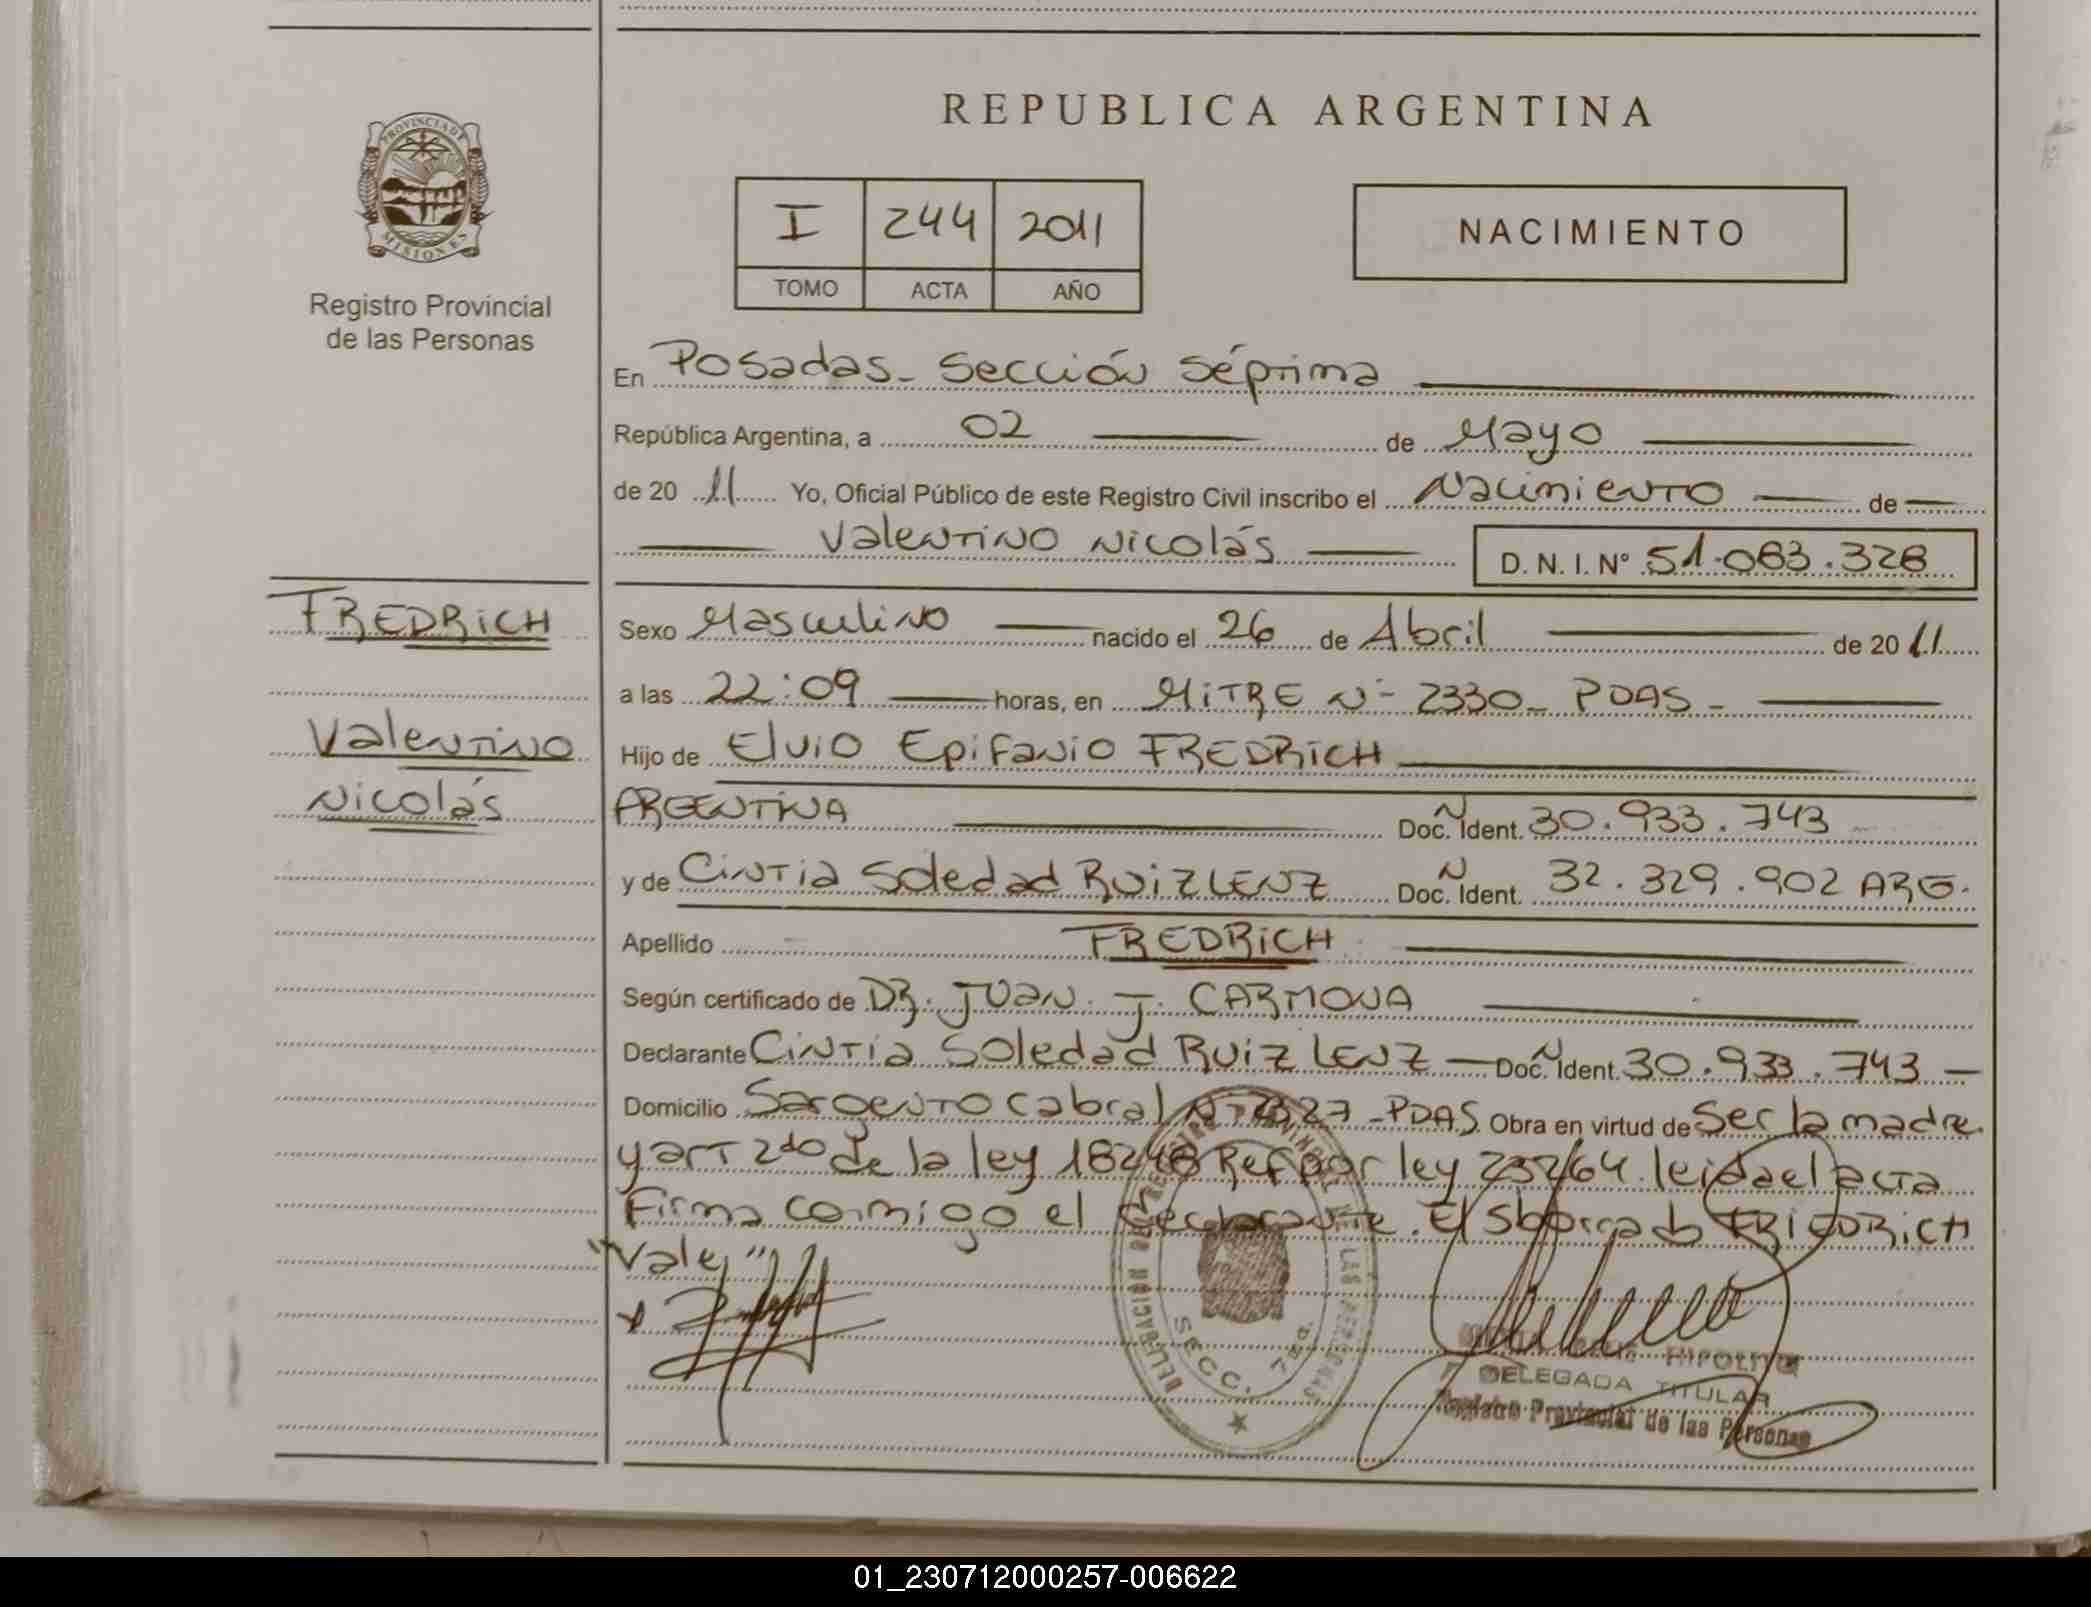 REPUBLICA ARGENTINA
PROVINCIA DE
MISIONES
Registro Provincial
de las Personas
I 244 2011
TOMO ACTA AÑO
NACIMIENTO
En Posadas - Sección Séptima
República Argentina, a 02 de Mayo
de 20 11 Yo, Oficial Público de este Registro Civil inscribo el Nacimiento de
Valentino Nicolás D. N. I. Nº 51.083.328
FREDRICH
Valentino
Nicolás
Sexo Masculino nacido el 26 de Abril de 20 11
a las 22:09 horas, en MITRE Nº 2330 - PDAS -
Hijo de Elvio Epifanio FREDRICH
ARGENTINA Doc. Ident. N 30.933.743
y de Cintia Soledad RUIZ LENZ Doc. Ident. N 32.329.902 ARG.
Apellido FREDRICH
Según certificado de DR. JUAN. J. CARMONA
Declarante Cintia Soledad RUIZ LENZ Doc. Ident. N 30.933.743
Domicilio Sargento Cabral Nº 2327 - PDAS Obra en virtud de Ser la madre
y art 2do de la ley 18248 Ref por ley 23264. leida el acta
Firma conmigo el declarante. El Sborrado FRIEDRICH
"Vale"
SECC. 7ma.
HIPOLITO
DELEGADA TITULAR
Registro Provincial de las Personas
01_230712000257-006622